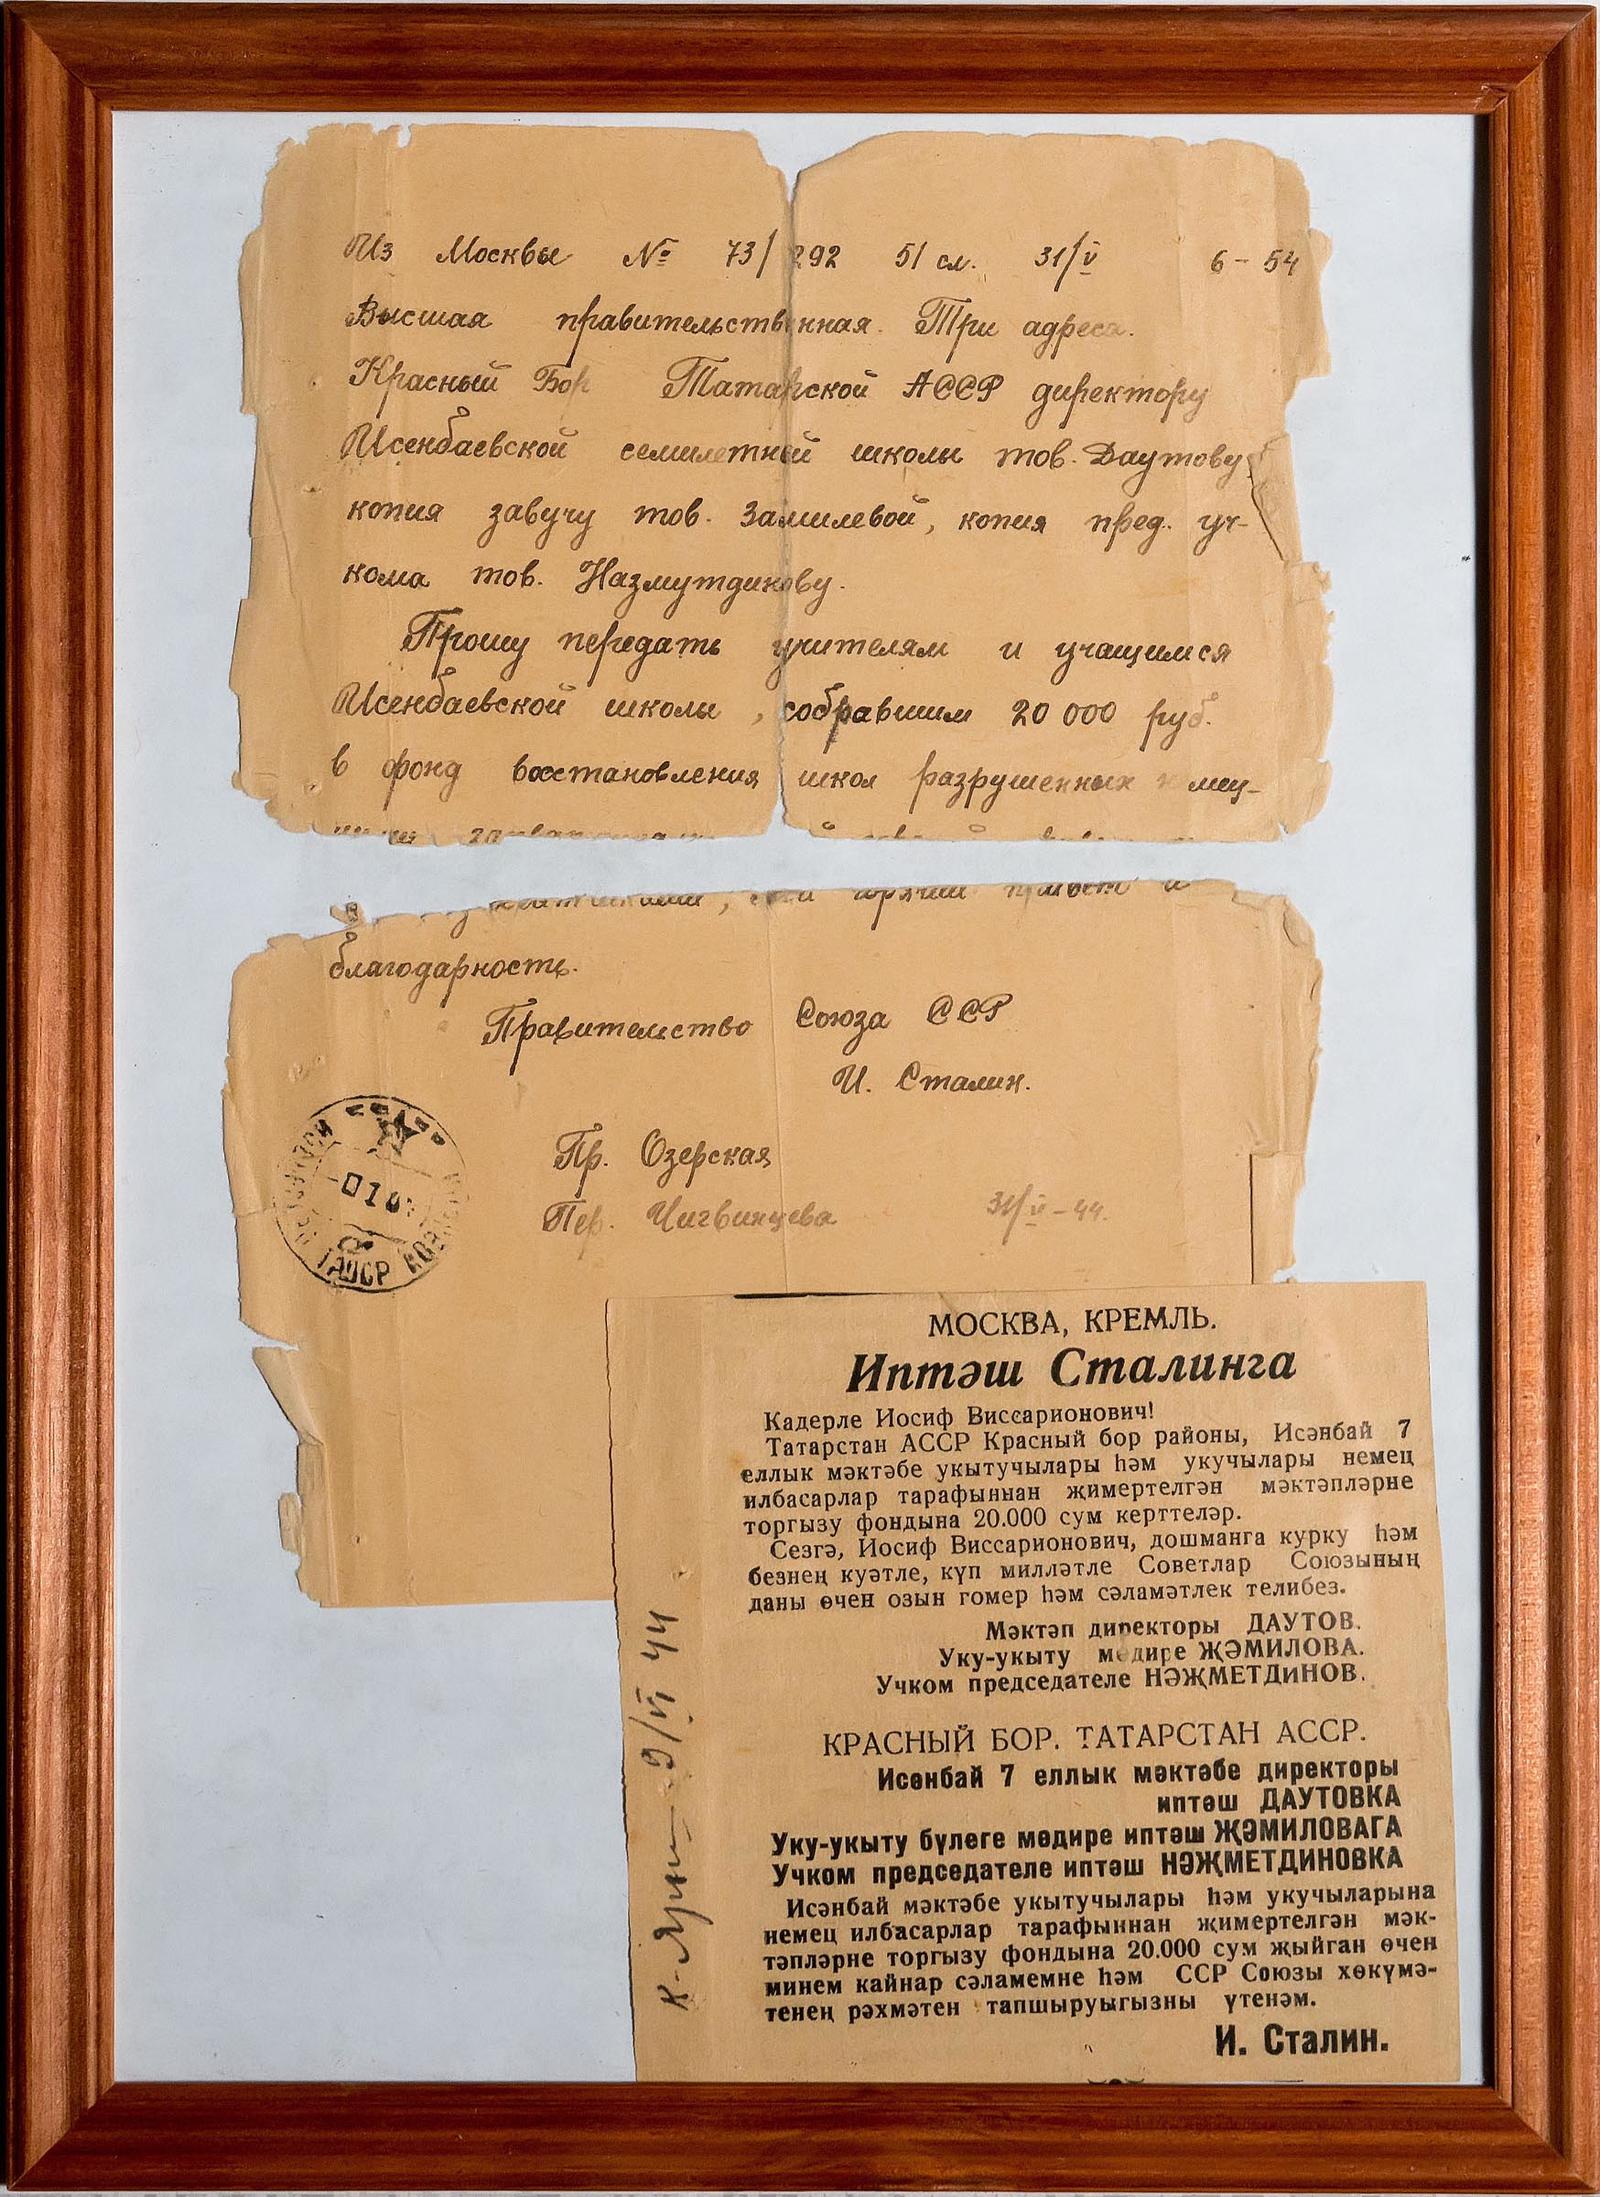 Из Москвы № 73/292 51 сл. 31/V 6-54
Высшая правительственная. Три адреса.
Красный Бор Татарской АССР директору
Исенбаевской семилетний школы тов. Даутову
копия завучу тов. Замилевой, копия пред. уч-
кома тов. Назмутдинову.
Прошу передать учителям и учащимся
Исенбаевской школы, собравшим 20 000 руб.
в фонд восстановления школ разрушенных немец-
горячий привет и
благодарность.
Правительство Союза ССР
И. Сталин.
Пр. Озерская
Пер. Чигвинцева 31/V-44.
ТАССР
МОСКВА, КРЕМЛЬ.
Иптәш Сталинга
Кадерле Иосиф Виссарионович!
Татарстан АССР Красный бор районы, Исәнбай 7
еллык мәктәбе укытучылары һәм укучылары немец
илбасарлар тарафыннан җимертелгән мәктәпләрне
торгызу фондына 20.000 сум керттеләр.
Сезгә, Иосиф Виссарионович, дошманга курку һәм
безнең куәтле, күп милләтле Советлар Союзының
даны өчен озын гомер һәм сәламәтлек телибез.
Мәктәп директоры ДАУТОВ.
Уку-укыту мөдире ҖӘМИЛОВА.
Учком председателе НӘҖМЕТДИНОВ.
КРАСНЫЙ БОР. ТАТАРСТАН АССР.
Исәнбай 7 еллык мәктәбе директоры
иптәш ДАУТОВКА
Уку-укыту бүлеге мөдире иптәш ҖӘМИЛОВАГА
Учком председателе иптәш НӘҖМЕТДИНОВКА
Исәнбай мәктәбе укытучылары һәм укучыларына
немец илбасарлар тарафыннан җимертелгән мәк-
тәпләрне торгызу фондына 20.000 сум җыйган өчен
минем кайнар сәламемне һәм ССР Союзы хөкүмә-
тенең рәхмәтен тапшыруыгызны үтенәм.
И. Сталин.
9/VI 44